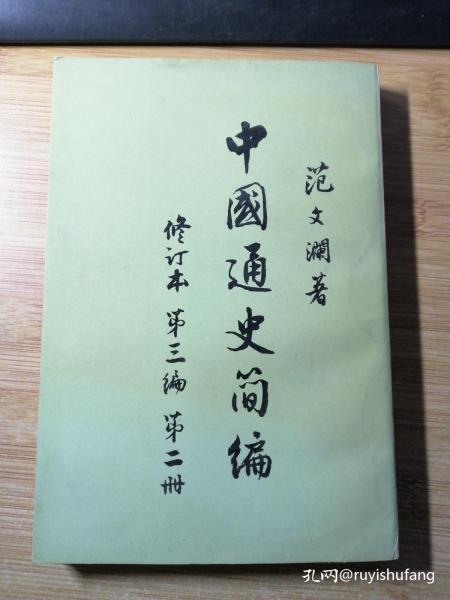 范文瀾著
中國通史简編
修订本 第三編 第二册
孔网@ruyishufang